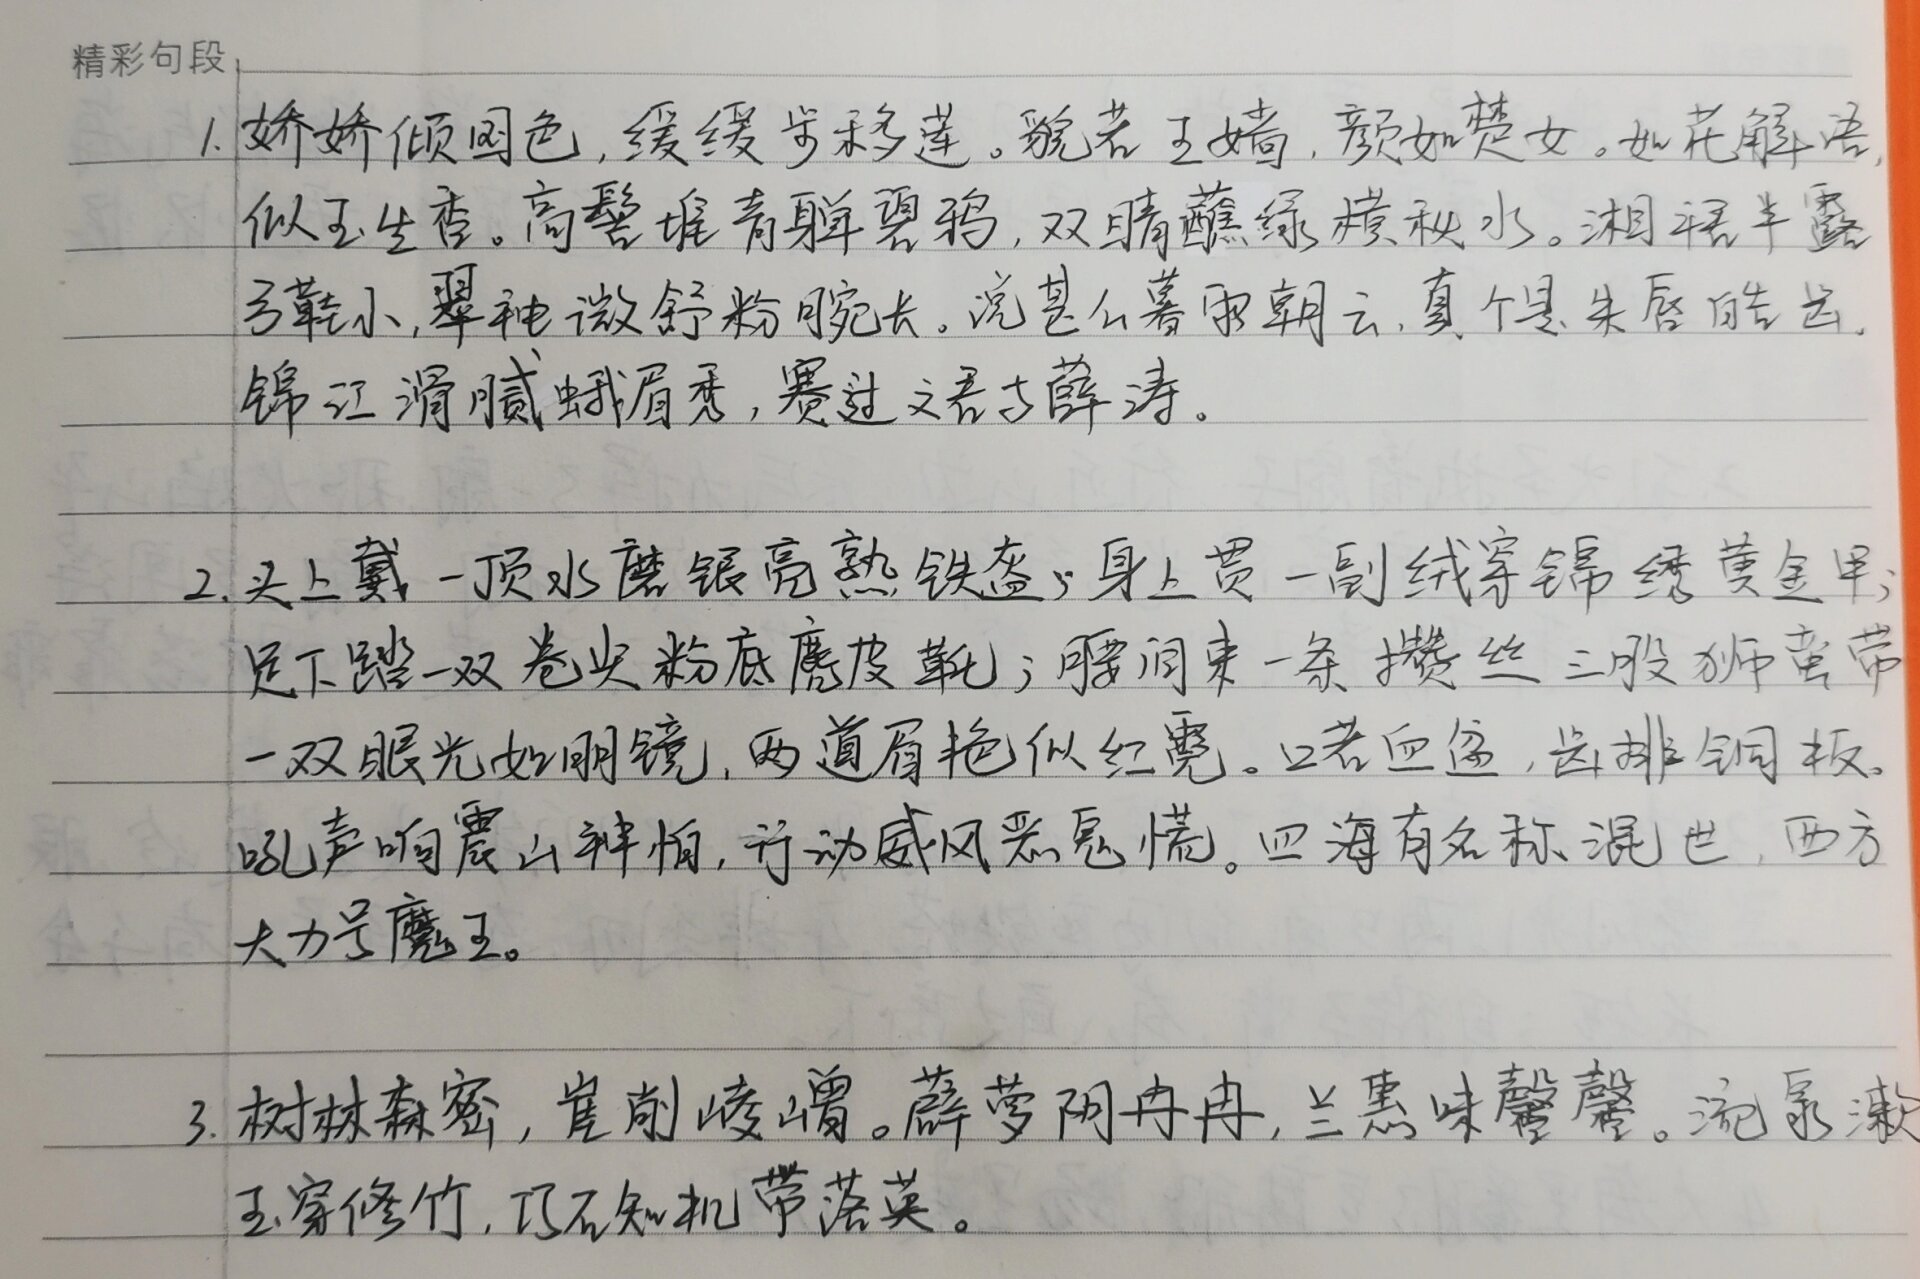 精彩句段
1. 娇娇倾国色，缓缓步移莲。貌若王嫱，颜如楚女。如花解语，
似玉生香。高髻堆青軃碧鸦，双睛蘸绿横秋水。湘裙半露
弓鞋小，翠袖微舒粉腕长。说甚么暮雨朝云，真个是朱唇皓齿。
锦江滑腻蛾眉秀，赛过文君与薛涛。
2. 头上戴一顶水磨银亮熟铁盔；身上贯一副绒穿锦绣黄金甲；
足下踏一双卷尖粉底麂皮靴；腰间束一条攒丝三股狮蛮带
一双眼光如明镜，两道眉艳似红霓。口若血盆，齿排铜板。
吼声响震山神怕，行动威风恶鬼慌。四海有名称混世，西方
大力号魔王。
3. 树林森密，崖削崚嶒。薜萝阴冉冉，兰蕙味馨馨。流泉漱
玉穿修竹，巧石知机带落英。